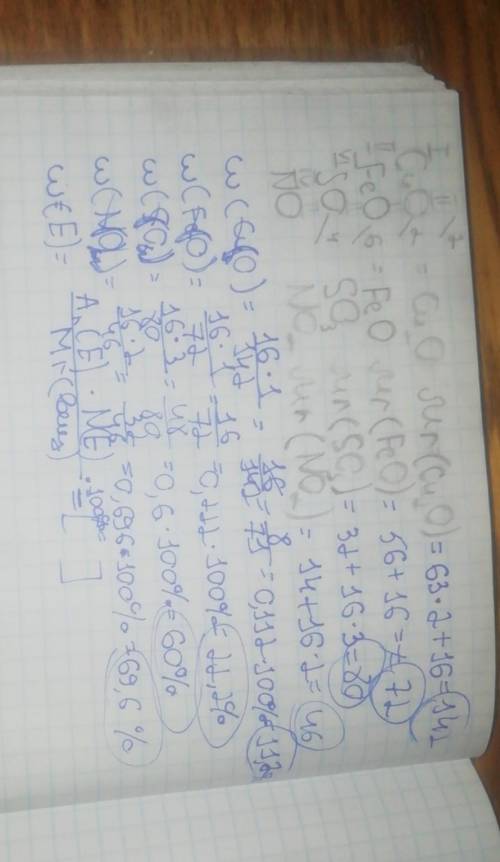 I II \2
Cu O /2 = Cu₂O Mr(Cu₂O) = 63·2+16=142
II
FeO/6 = FeO Mr(FeO) = 56+16=72
VI
SO SO₃ Mr(SO₃) = 32+16·3=80
IV
NO NO₂ Mr(NO₂) = 14+16·2=46
w(Cu₂O) = 16·1/142 = 16/142 = 8/71 = 0,112·100%=11,2%
w(FeO) = 16·1/72 = 16/72 =0,222·100%=22,2%
w(SO₃) = 16·3/80 = 48/80 =0,6·100%=60%
w(NO₂) = 16·2/46 = 32/46 =0,696·100%=69,6%
w(E) = Ar(E)·N(E)/Mr ·100%= [ ]